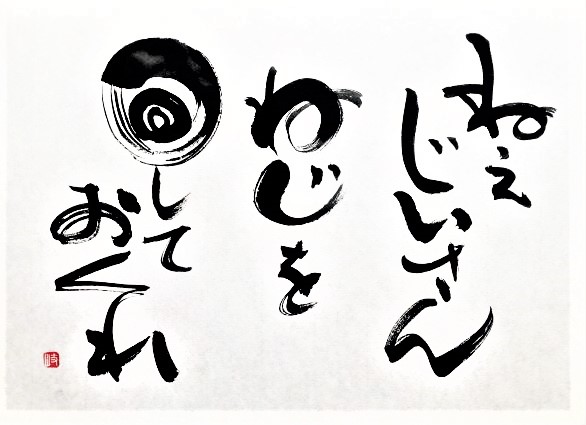 ねぇ
じいさん
ねじを
回して
おくれ